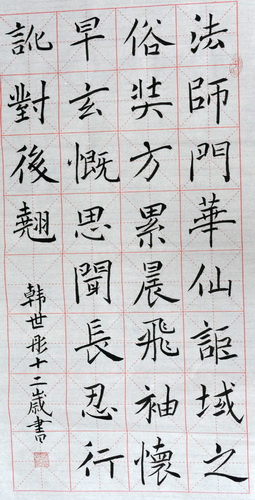 法師門華仙詎域之
俗奘方累晨飛袖懷
早玄慨思聞長忍行
訛對後翹
韩世彤十二歲書